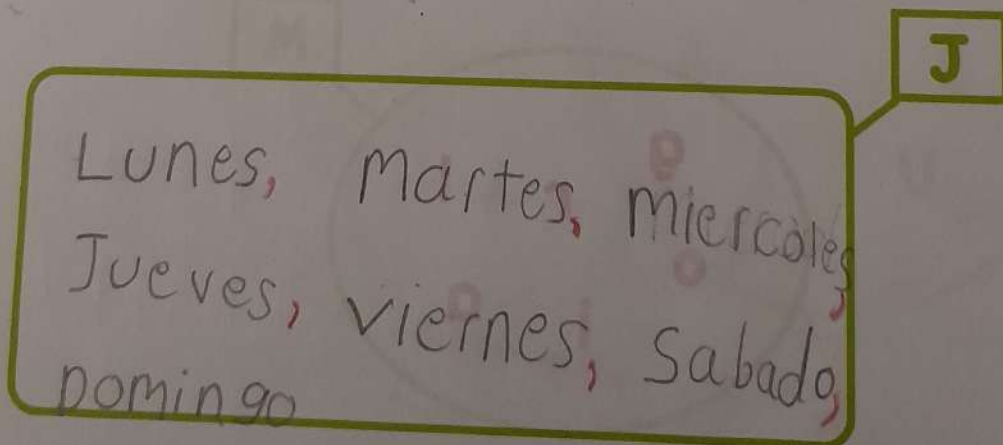 J
Lunes, Martes, miercoles,
Jueves, viernes, Sabado,
Domingo